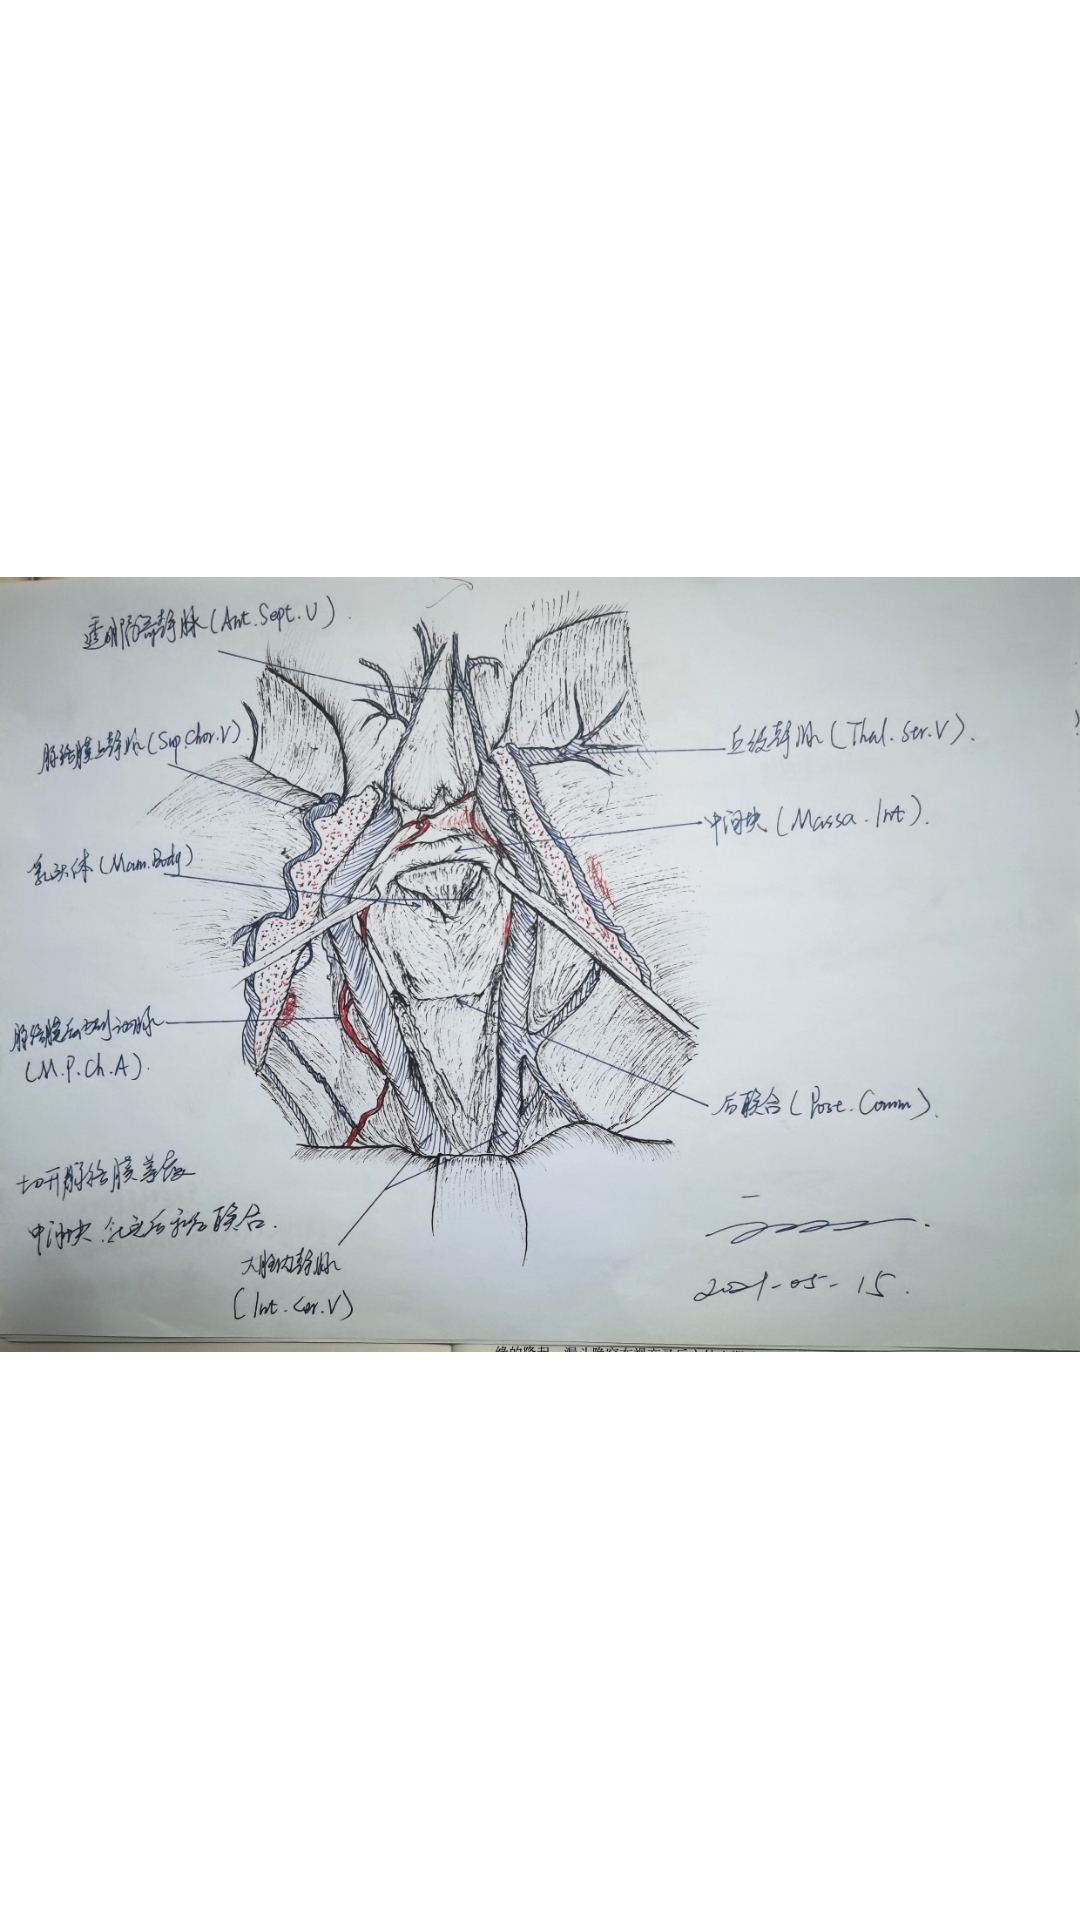 透明隔前静脉(Ant.Sept.V).
脉络膜上静脉(Sup.Chor.V)
丘纹静脉(Thal.Str.V).
中间块(Massa.Int).
乳头体(Mam.Body)
脉络膜后内侧动脉
(M.P.Ch.A).
后联合(Post.Comm).
切开脉络膜
中间块 后联合.
大脑内静脉
(Int.Cer.V)
2021-05-15.